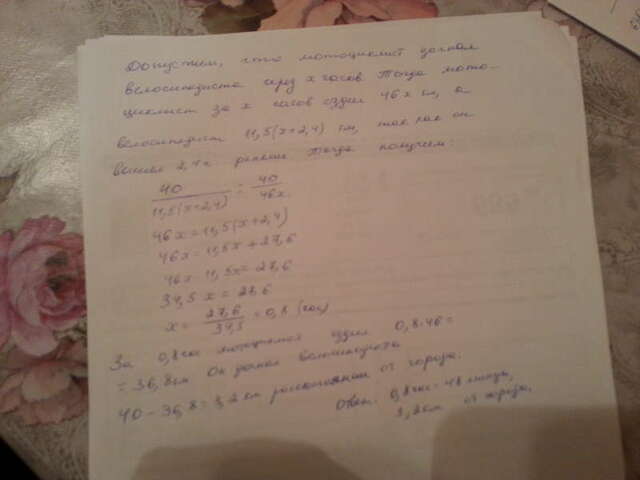 Допустим, что мотоциклист догнал
велосипедиста через x часов. Тогда мото-
циклист за x часов ездил 46x км, а
велосипедист 11,5(x+2,4) км, так как он
выехал 2,4ч раньше. Тогда получаем:
40/11,5(x+2,4) = 40/46x
46x = 11,5(x+2,4)
46x = 11,5x + 27,6
46x - 11,5x = 27,6
34,5x = 27,6
x = 27,6/34,5 = 0,8 (час)
За 0,8час мотоциклист ездил 0,8·46 =
= 36,8км Он догнал велосипедиста
40 - 36,8 = 3,2 км расстоянии от города.
Ответ: 0,8час = 48 минут,
3,2км от города.